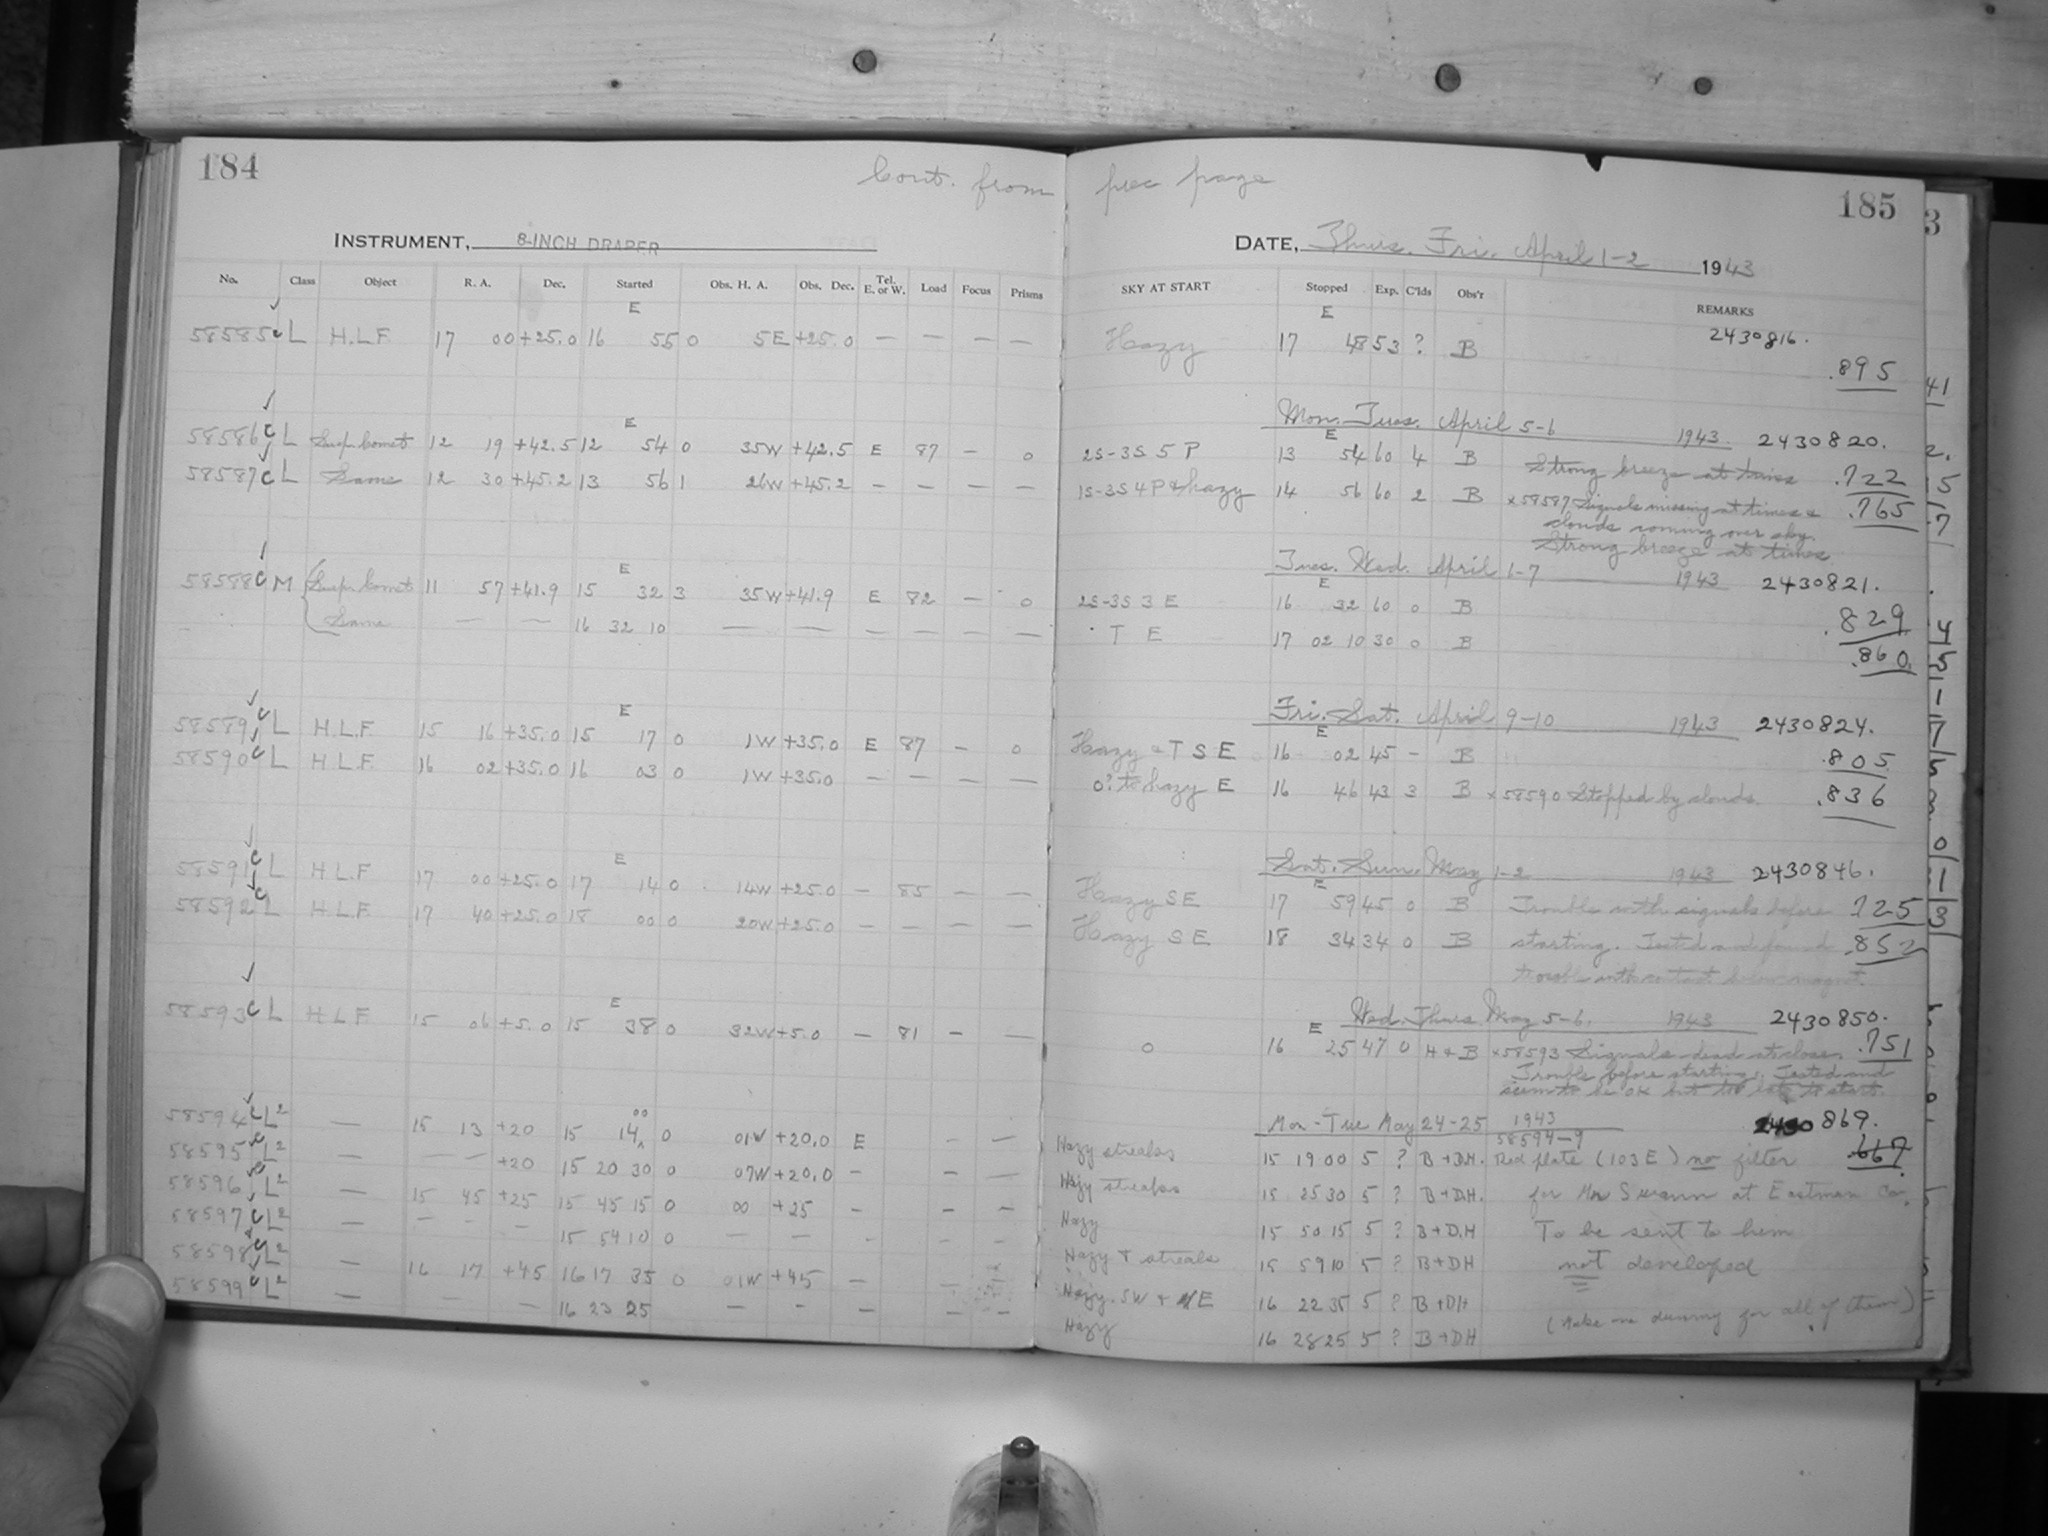 184
Cont. from prec page
185
INSTRUMENT, 8-INCH DRAPER
DATE, Thurs. Fri. April 1-2 1943
No. Class Object R. A. Dec. Started Obs. H. A. Obs. Dec. Tel. E. or W. Load Focus Prisms SKY AT START Stopped Exp. C'lds Obs'r REMARKS
E E
58585 c L H.L.F 17 00 +25.0 16 55 0 5E +25.0 — — — — Hazy 17 48 53 ? B 2430816.
.895
Mon. Tues. April 5-6 1943 2430820.
E E
58586 c L Susp. Comet 12 19 +42.5 12 54 0 35W +42.5 E 87 — 0 2S-3S 5 P 13 54 60 4 B Strong breeze at times .722
58587 c L Same 12 30 +45.2 13 56 1 26W +45.2 — — — — 1S-3S 4P & hazy 14 56 60 2 B x 58587 Signals missing at times & .765
clouds roming over sky.
Strong breeze at times
Tues. Wed. April 6-7 1943 2430821.
E E
58588 c M Susp. Comet 11 57 +41.9 15 32 3 35W +41.9 E 82 — 0 2S-3S 3 E 16 32 60 0 B .829
Same — — 16 32 10 — — — — — — T E 17 02 10 30 0 B .860.
Fri. Sat. April 9-10 1943 2430824.
E E
58589 c L H.L.F. 15 16 +35.0 15 17 0 1W +35.0 E 87 — 0 Hazy & T S E 16 02 45 — B .805
58590 c L H.L.F. 16 02 +35.0 16 03 0 1W +35.0 — — — — 0? to hazy E 16 46 43 3 B x 58590 Stopped by clouds. .836
Sat. Sun. May 1-2 1943 2430846.
E E
58591 c L H.L.F 17 00 +25.0 17 14 0 14W +25.0 — 85 — — Hazy S E 17 59 45 0 B Trouble with signals before .725
58592 c L H.L.F. 17 40 +25.0 18 00 0 20W +25.0 — — — — Hazy S E 18 34 34 0 B starting. Tested and found .852
trouble with contact below magnet.
Wed. Thurs May 5-6. 1943 2430850.
E E
58593 c L H L F 15 06 +5.0 15 38 0 32W +5.0 — 81 — — 0 16 25 47 0 H & B x 58593 Signals dead at close. .751
Trouble before starting. Tested and
seem to be OK but too late to start.
Mon - Tue May 24-25 1943 2430 869.
58594-9
58594 c L² — 15 13 +20 15 14 00 0 01W +20.0 E — — Hazy streaks 15 19 00 5 ? B + D.H. Red plate (103E) no filter .667
58595 c L² — — — +20 15 20 30 0 07W +20.0 — — — Hazy streaks 15 25 30 5 ? B + D.H. for Mr Swann at Eastman Co.
58596 c L² — 15 45 +25 15 45 15 0 00 +25 — — — Hazy 15 50 15 5 ? B + D.H To be sent to him
58597 c L² — — — — 15 54 10 0 — — — — — Hazy + streaks 15 59 10 5 ? B + DH not developed
58598 c L² — 16 17 +45 16 17 35 0 01W +45 — — Hazy. SW + NE 16 22 35 5 ? B + DH
58599 c L² — — — 16 23 25 — — — — — Hazy 16 28 25 5 ? B + DH (Make one dummy for all of them)